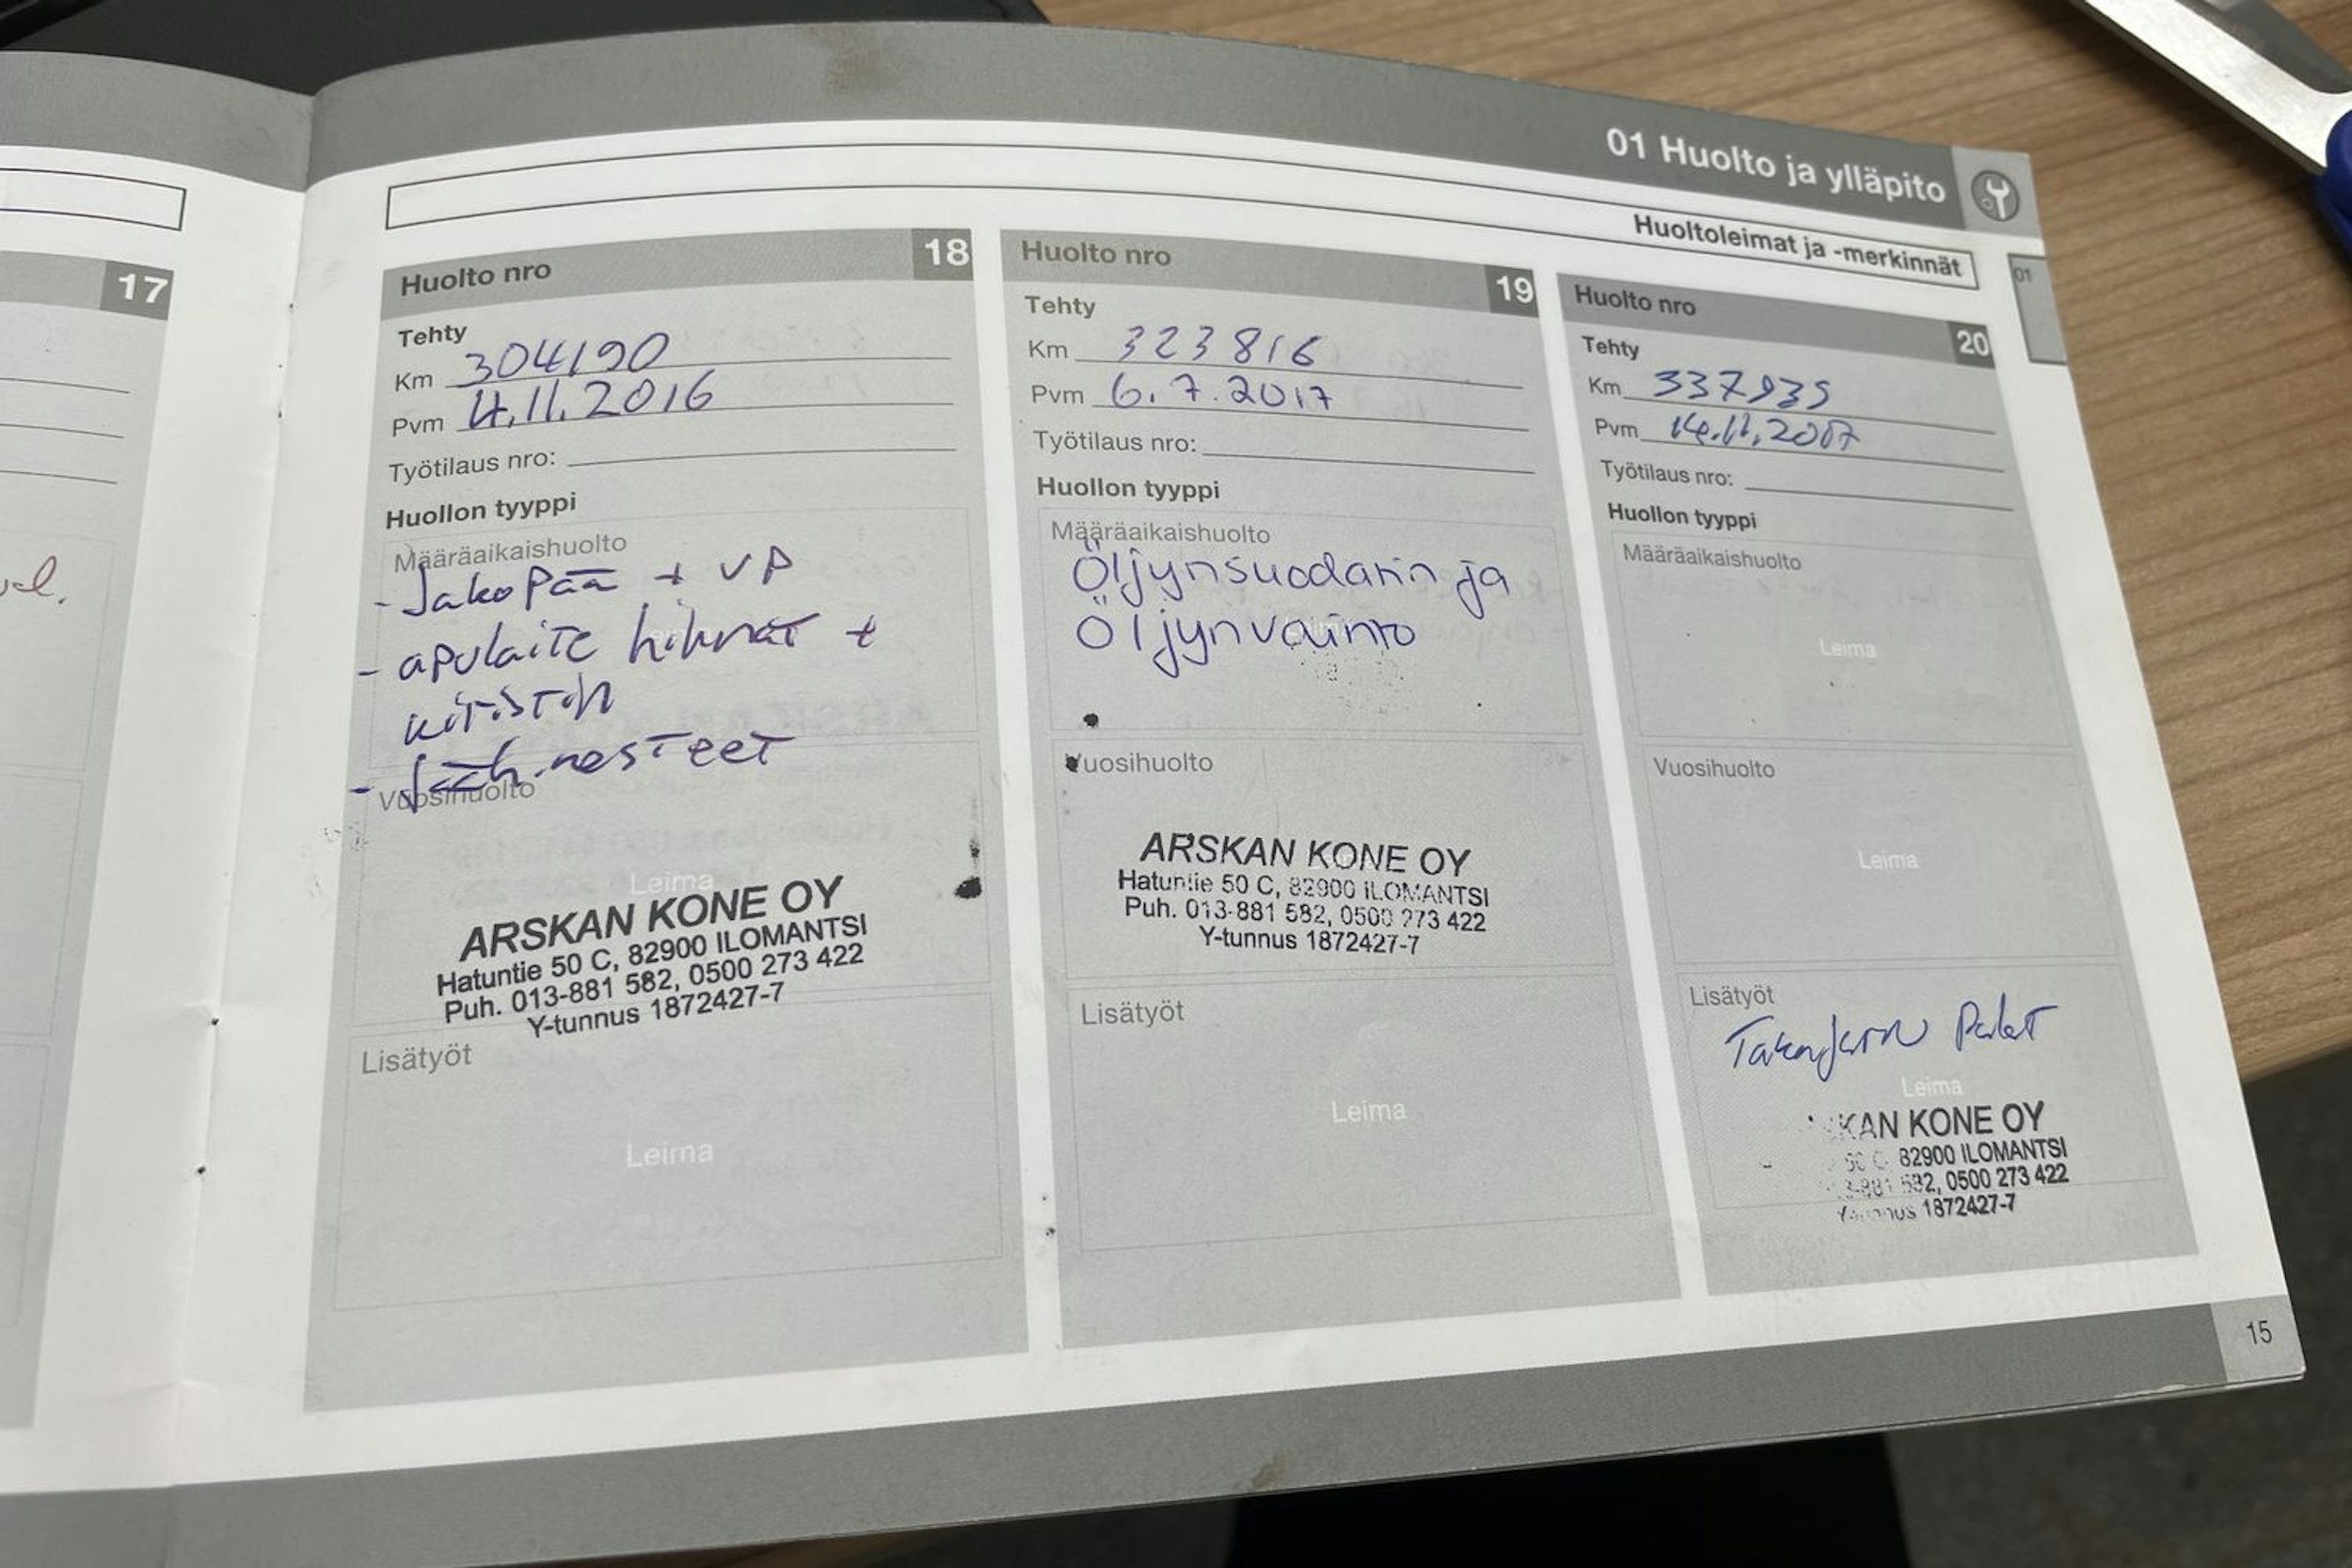 01 Huolto ja ylläpito
Huoltoleimat ja -merkinnät
01
17
Huolto nro 18
Tehty
Km 304190
Pvm 4.11.2016
Työtilaus nro:
Huollon tyyppi
Määräaikaishuolto
- Jakopää + VP
- apulaite hihnat +
kiristin
- Jääh.nesteet
Vuosihuolto
Leima
ARSKAN KONE OY
Hatuntie 50 C, 82900 ILOMANTSI
Puh. 013-881 582, 0500 273 422
Y-tunnus 1872427-7
Lisätyöt
Leima
Huolto nro 19
Tehty
Km 323816
Pvm 6.7.2017
Työtilaus nro:
Huollon tyyppi
Määräaikaishuolto
Öljynsuodatin ja
Öljynvaihto
Vuosihuolto
ARSKAN KONE OY
Hatuntie 50 C, 82900 ILOMANTSI
Puh. 013-881 582, 0500 273 422
Y-tunnus 1872427-7
Lisätyöt
Leima
Huolto nro 20
Tehty
Km 337935
Pvm 14.11.2017
Työtilaus nro:
Huollon tyyppi
Määräaikaishuolto
Leima
Vuosihuolto
Leima
Lisätyöt
Takajarru Palat
Leima
KAN KONE OY
50 C, 82900 ILOMANTSI
3-881 582, 0500 273 422
Y-tunnus 1872427-7
15